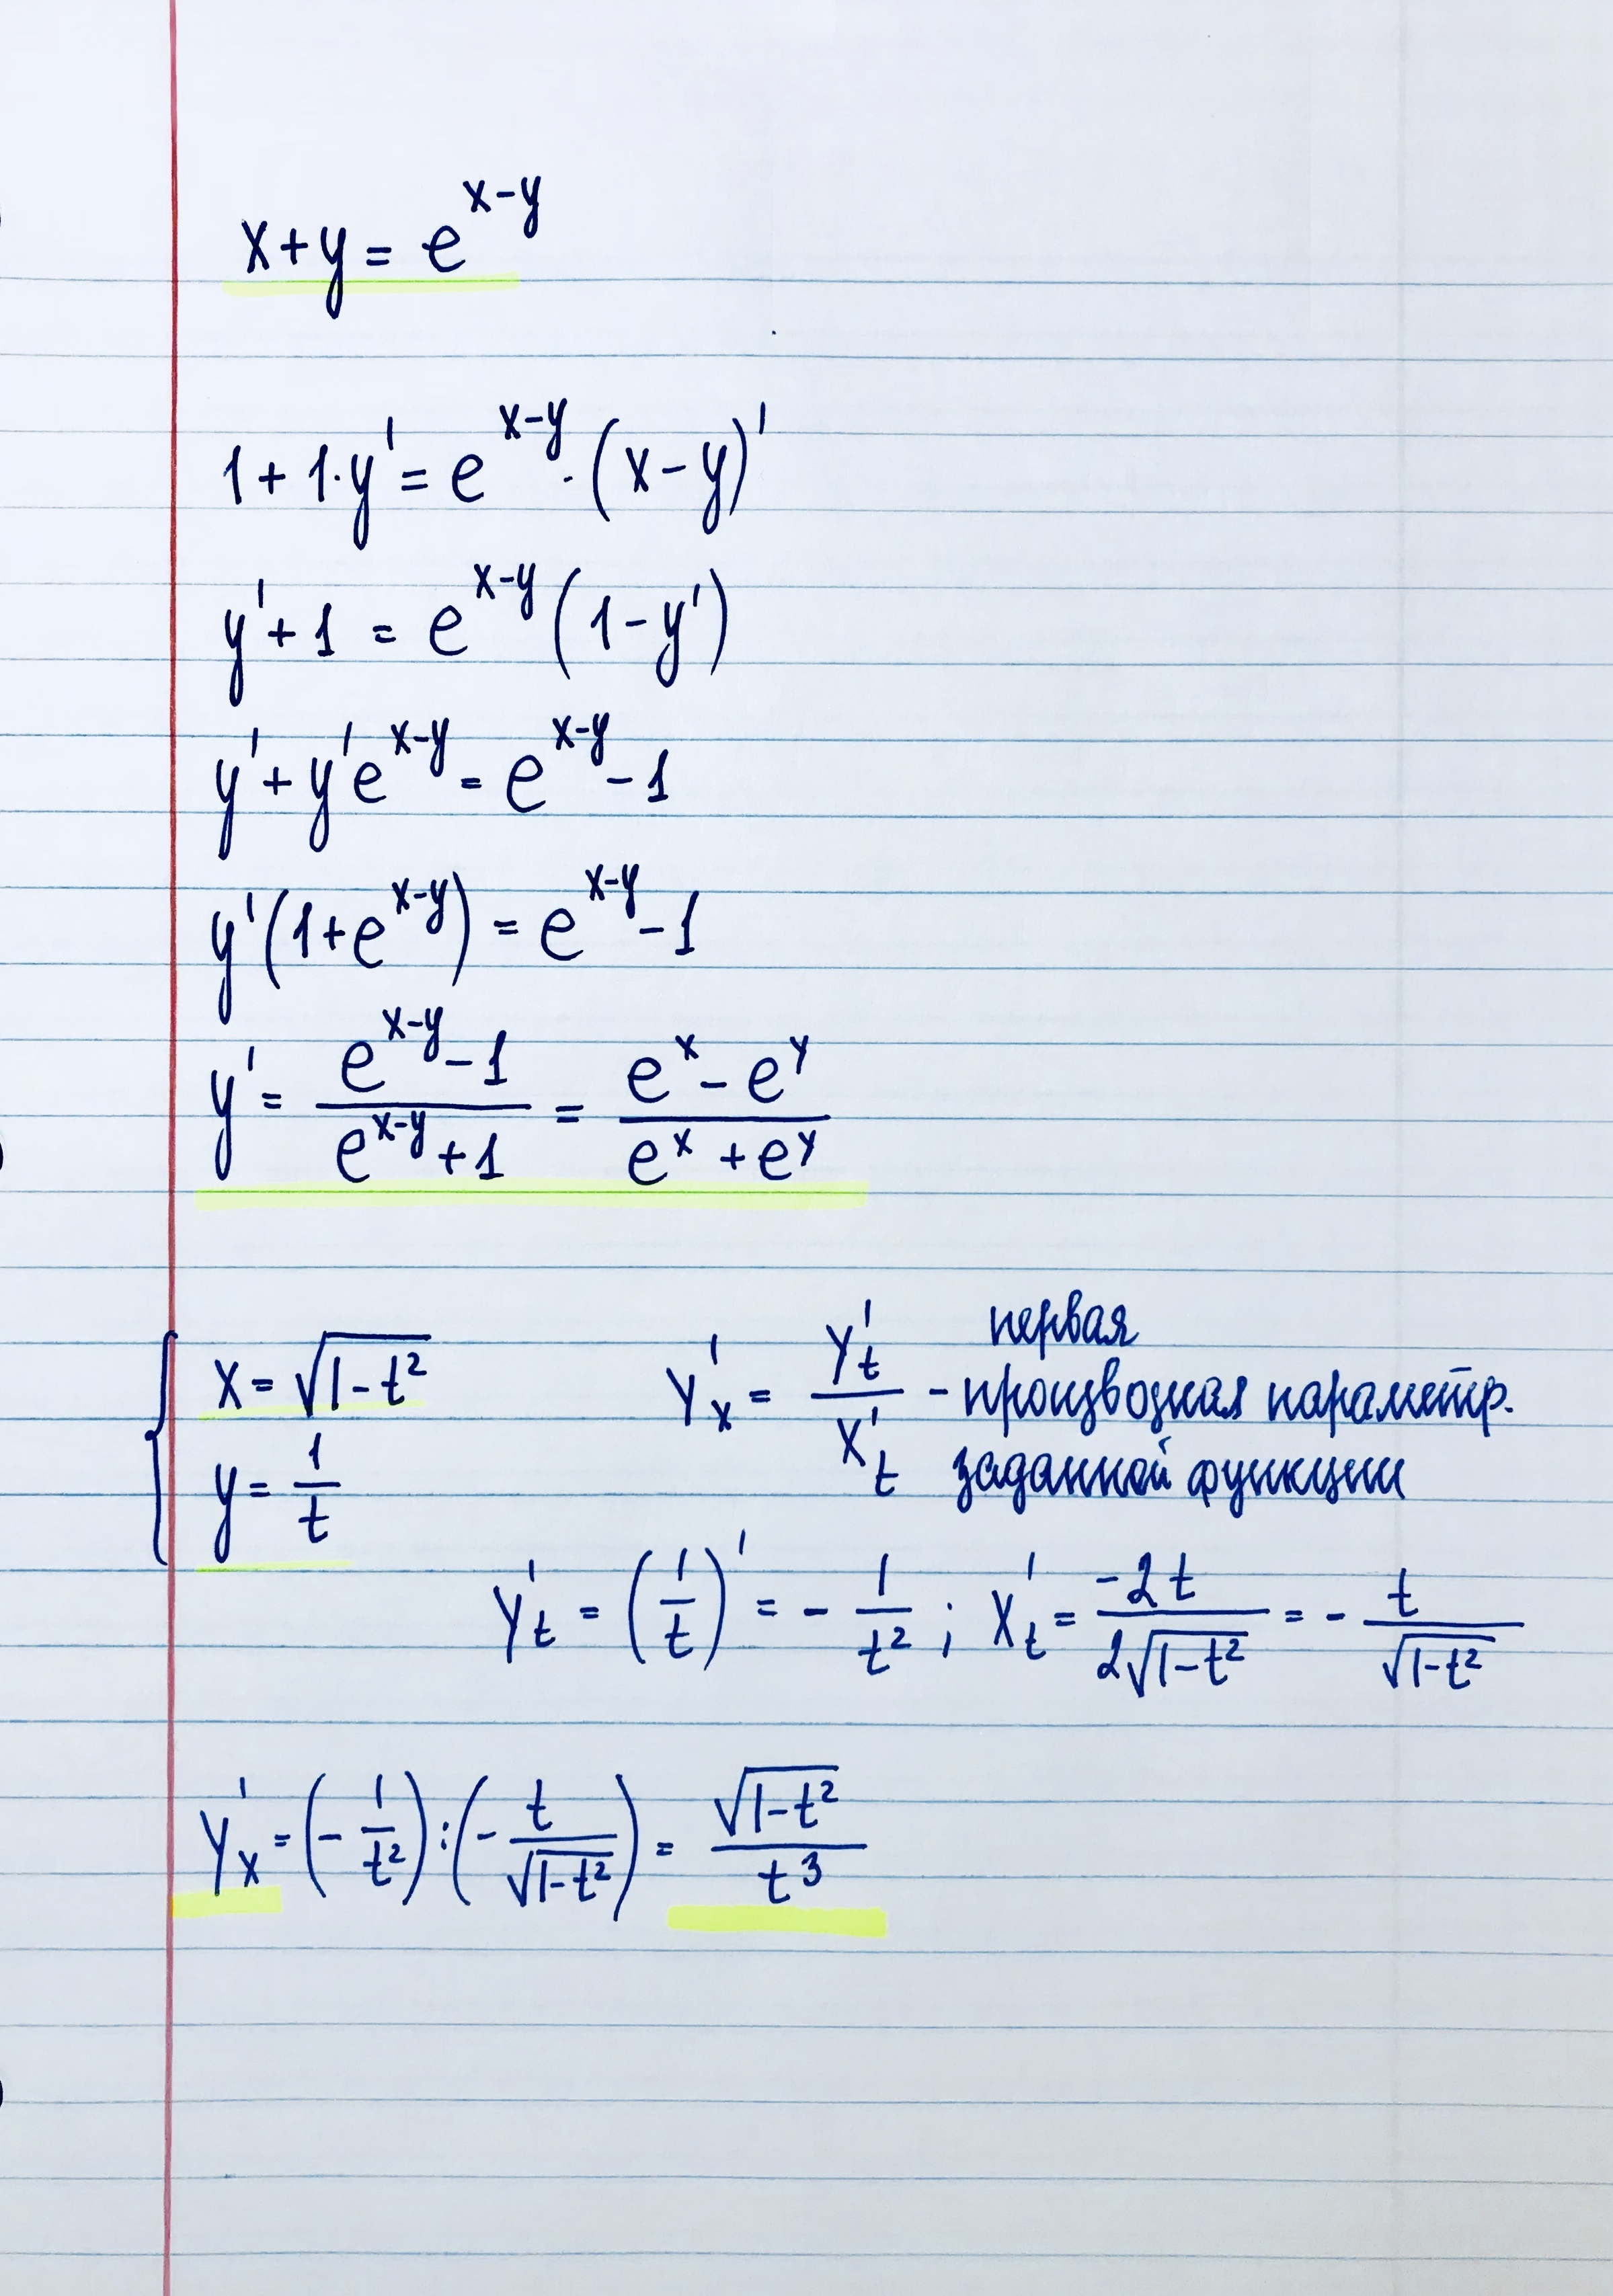 x+y = e^{x-y}
1 + 1·y' = e^{x-y} · (x-y)'
y' + 1 = e^{x-y} (1-y')
y' + y'e^{x-y} = e^{x-y} - 1
y'(1+e^{x-y}) = e^{x-y} - 1
y' = \frac{e^{x-y}-1}{e^{x-y}+1} = \frac{e^x - e^y}{e^x + e^y}
{ x = \sqrt{1-t^2}
y = \frac{1}{t}
y'_x = \frac{y'_t}{x'_t} - первая
производная параметр.
заданной функции
y'_t = (\frac{1}{t})' = - \frac{1}{t^2} ; x'_t = \frac{-2t}{2\sqrt{1-t^2}} = - \frac{t}{\sqrt{1-t^2}}
y'_x = (- \frac{1}{t^2}) : (- \frac{t}{\sqrt{1-t^2}}) = \frac{\sqrt{1-t^2}}{t^3}